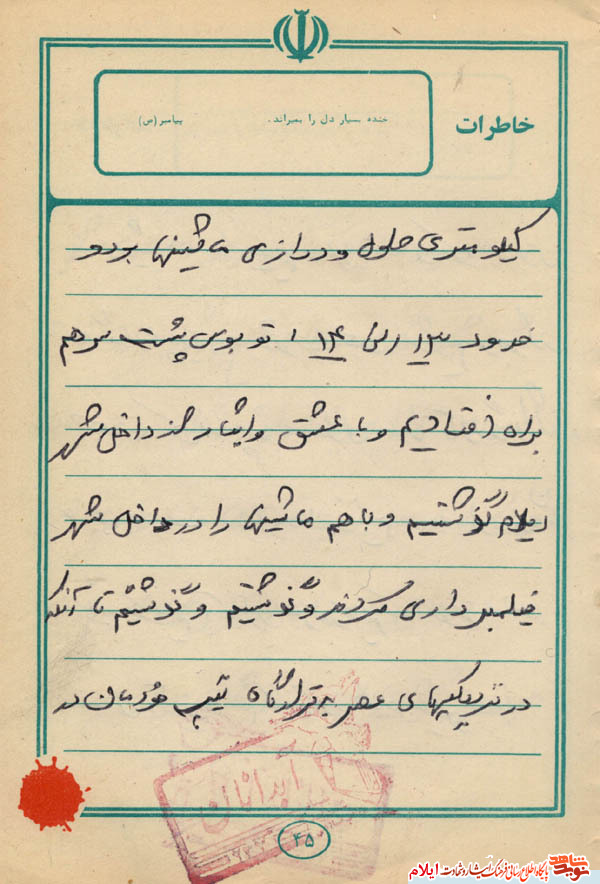 خاطرات
خنده بسیار دل را بمیراند. پیامبر (ص)
کیلو متری طول و درازی ماشینها بود و
حدود ۱۳ الی ۱۴ اتوبوس پشت سر هم
براه افتادیم و با عشق و ایثار از داخل شهر
ایلام گذشتیم و با هم ماشینها را در داخل شهر
فیلمبرداری میکردند و گذشتیم و گذشتیم تا آنکه
در نزدیکیهای عصر به قرارگاه تیپ خودمان در
آبدانان
۴۵
نوید شاهد
پایگاه اطلاع رسانی فرهنگ ایثار و شهادت ایلام